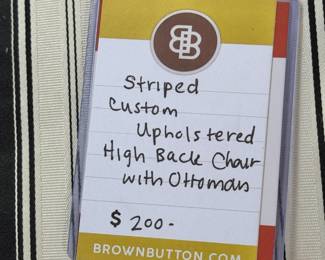 BB
Striped
Custom
Upholstered
High Back Chair
with Ottoman
$ 200-
BROWNBUTTON.COM